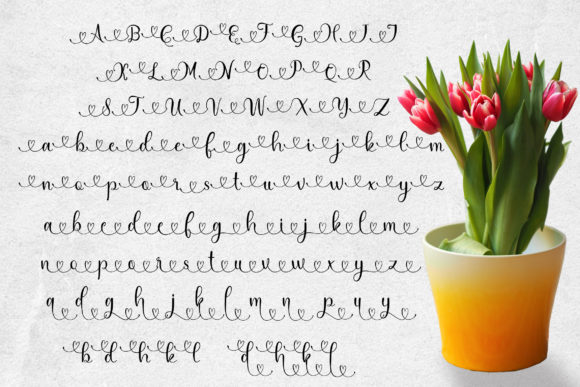 A B C D E F G H I J
K L M N O P Q R
S T U V W X Y Z
a b c d e f g h i j k l m
n o p q r s t u v w x y z
a b c d e f g h i j k l m
n o p q r s t u v w x y z
a d g h j k l m n p u y
b d h k l d h k l